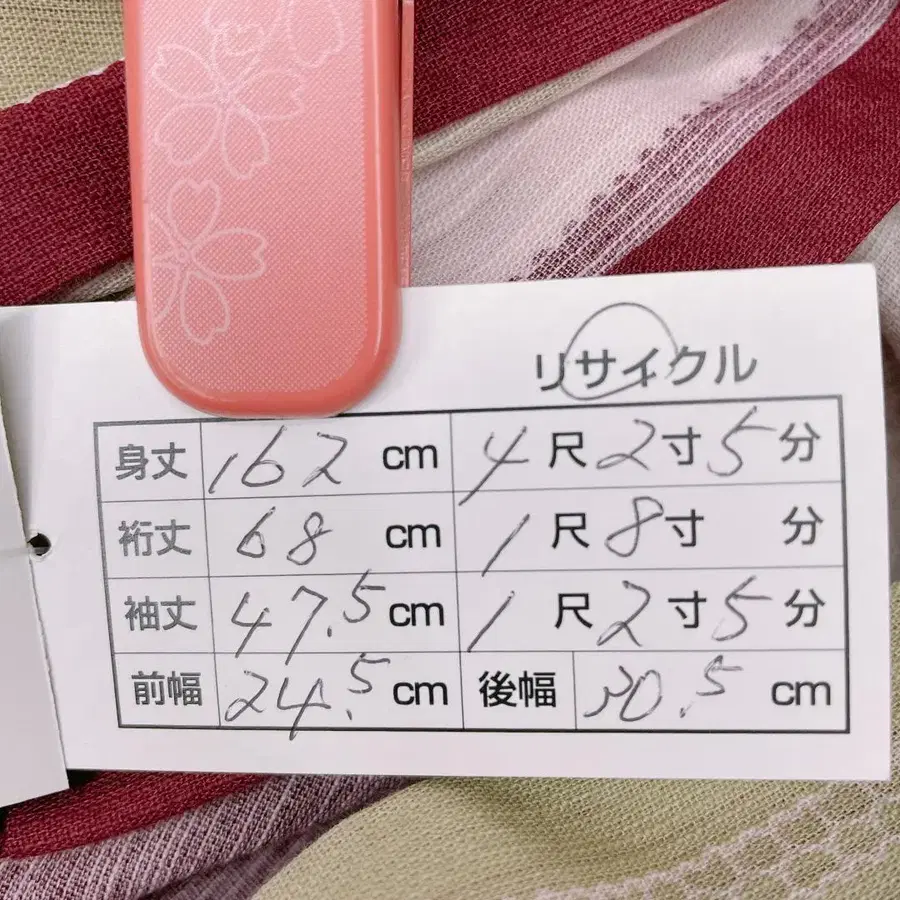 リサイクル
身丈 162 cm 4尺2寸5分
裄丈 68 cm 1尺8寸 分
袖丈 47.5 cm 1尺2寸5分
前幅 24.5 cm 後幅 30.5 cm